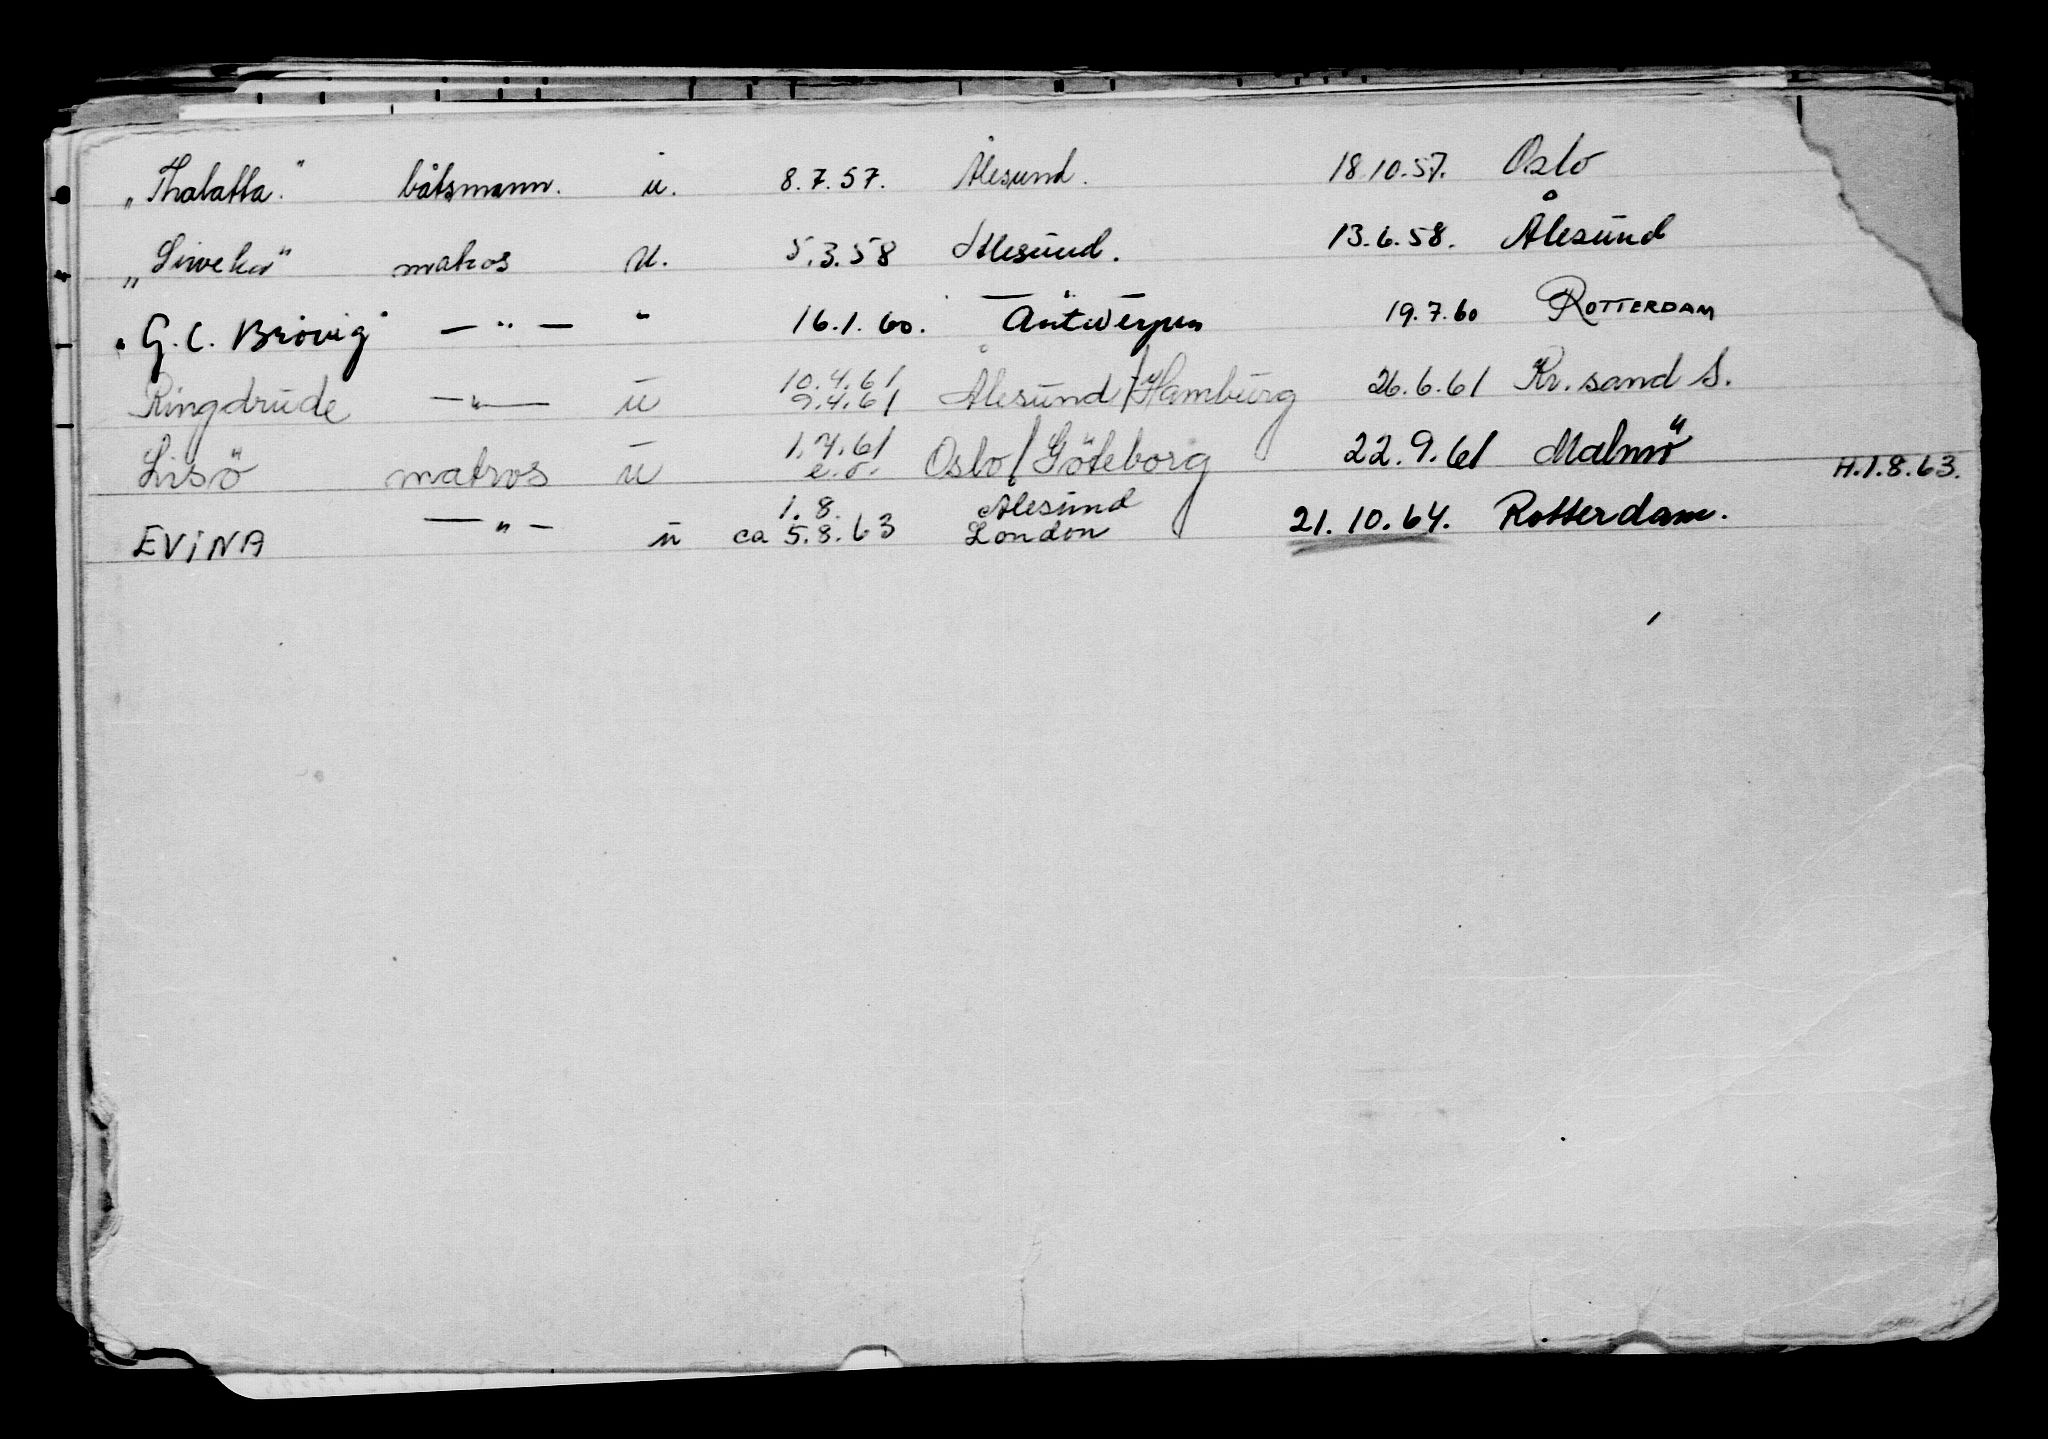 „Thalatta" båtsmann. u. 8.7.57. Ålesund. 18.10.57. Oslo
matros u. 5.3.58 Ålesund. 13.6.58. Ålesund
"G. C. Brövig" — " — " 16.1.60. Antwerpen 19.7.60 ROTTERDAM
Ringdrude — " — u 10.4.61 9.4.61 Ålesund/Hamburg 26.6.61 Kr. sand S.
Lisö matros u 1.7.61 e.o. Oslo/Göteborg 22.9.61 Malmö H.1.8.63.
EVINA — " — u 1.8. ca 5.8.63 Ålesund London 21.10.64. Rotterdam.